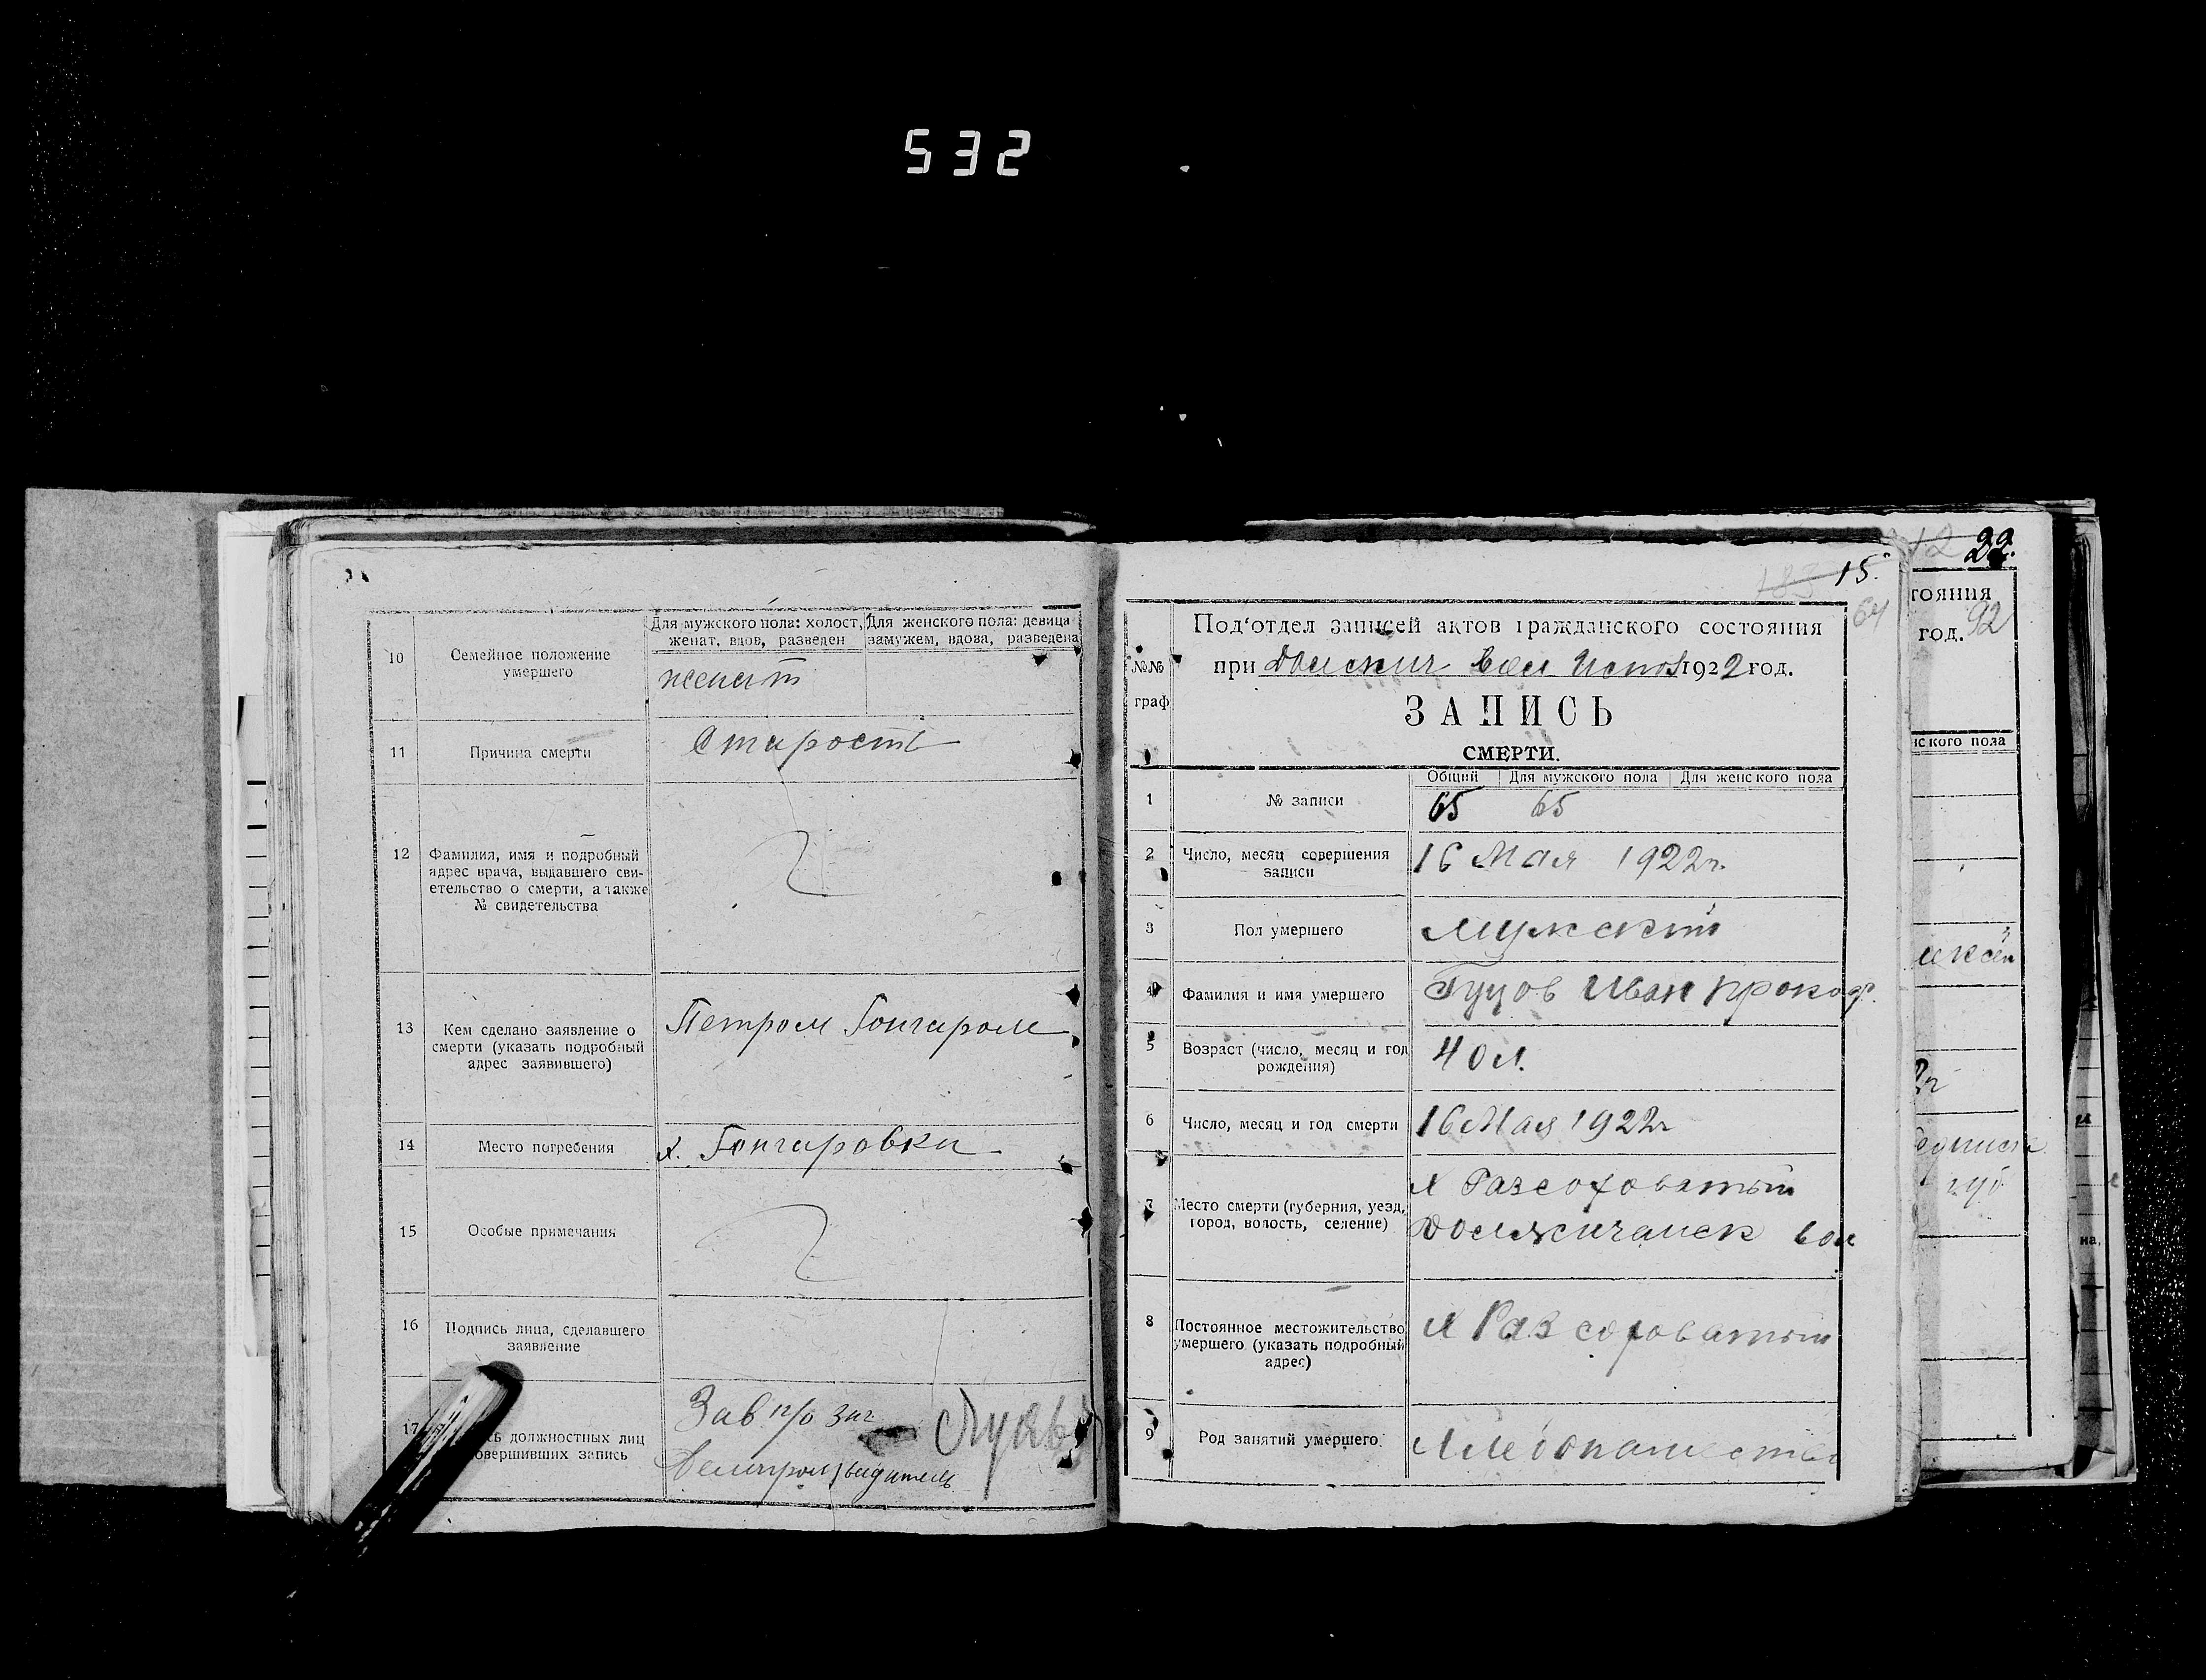 532
10
Семейное положение
умершего
Для мужского пола: холост,
женат, вдов, разведен
Для женского пола: девица
замужем, вдова, разведена
женат
11
Причина смерти
Старость
12
Фамилия, имя и подробный
адрес врача, выдавшего сви-
етельство о смерти, а также
№ свидетельства
13
Кем сделано заявление о
смерти (указать подробный
адрес заявившего)
Петром Гончаром
14
Место погребения
х. Гончаровка
15
Особые примечания
16
Подпись лица, сделавшего
заявление
17
сь должностных лиц
овершивших запись
Зав п/о заг
15.
64
Под'отдел записей актов гражданского состояния
№№
граф
при Должич вол Испол 1922 год.
ЗАПИСЬ
СМЕРТИ.
Общий
Для мужского пола
Для женского пола
1
№ записи
65 65
2
Число, месяц совершения
записи
16 Мая 1922г.
3
Пол умершего
мужской
4
Фамилия и имя умершего
Гуцов Иван Прокоф.
5
Возраст (число, месяц и год
рождения)
40 л.
6
Число, месяц и год смерти
16 Мая 1922г
7
Место смерти (губерния, уезд,
город, волость, селение)
х Разсоховатый
Должичанск вол
8
Постоянное местожительство
умершего (указать подробный
адрес)
х Разсоховатый
9
Род занятий умершего
Хлебопашество
22.
тояния
год. 92
нского пола